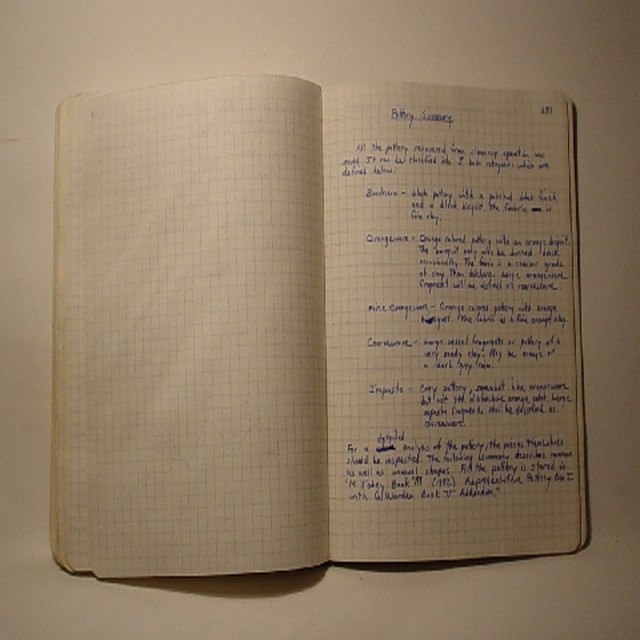 Pottery Summary
All the pottery recovered from cleaning operation was
saved. It can be classified into 5 basic categories which are
defined below:
Bucchero - black pottery with a polished black finish
and a black bisquit. The fabric is
fine clay.
Orangeware - Orange colored pottery with an orange bisquit.
The bisquit may also be burned black
occasionally. The fabric is a coarser grade
of clay than bucchero. Large orangeware
fragments will be defined as coarseware.
Fine Orangeware - Orange colored pottery with orange
bisquit. The fabric is a fine orange clay.
Coarseware - Large vessel fragments or pottery of a
very sandy clay. May be orange or
a dark grey
Impasto - Grey pottery, somewhat like orangeware
but not the distinctive orange color. Large
impasto fragments shall be defined as
coarseware.
For a detailed analysis of the pottery, the pieces themselves
should be inspected. The following summary describes common
as well as unusual shapes. All the pottery is stored in
"M. Tobey Book III (182) Representative Pottery Box I
with G. Warden Book V Addendum."